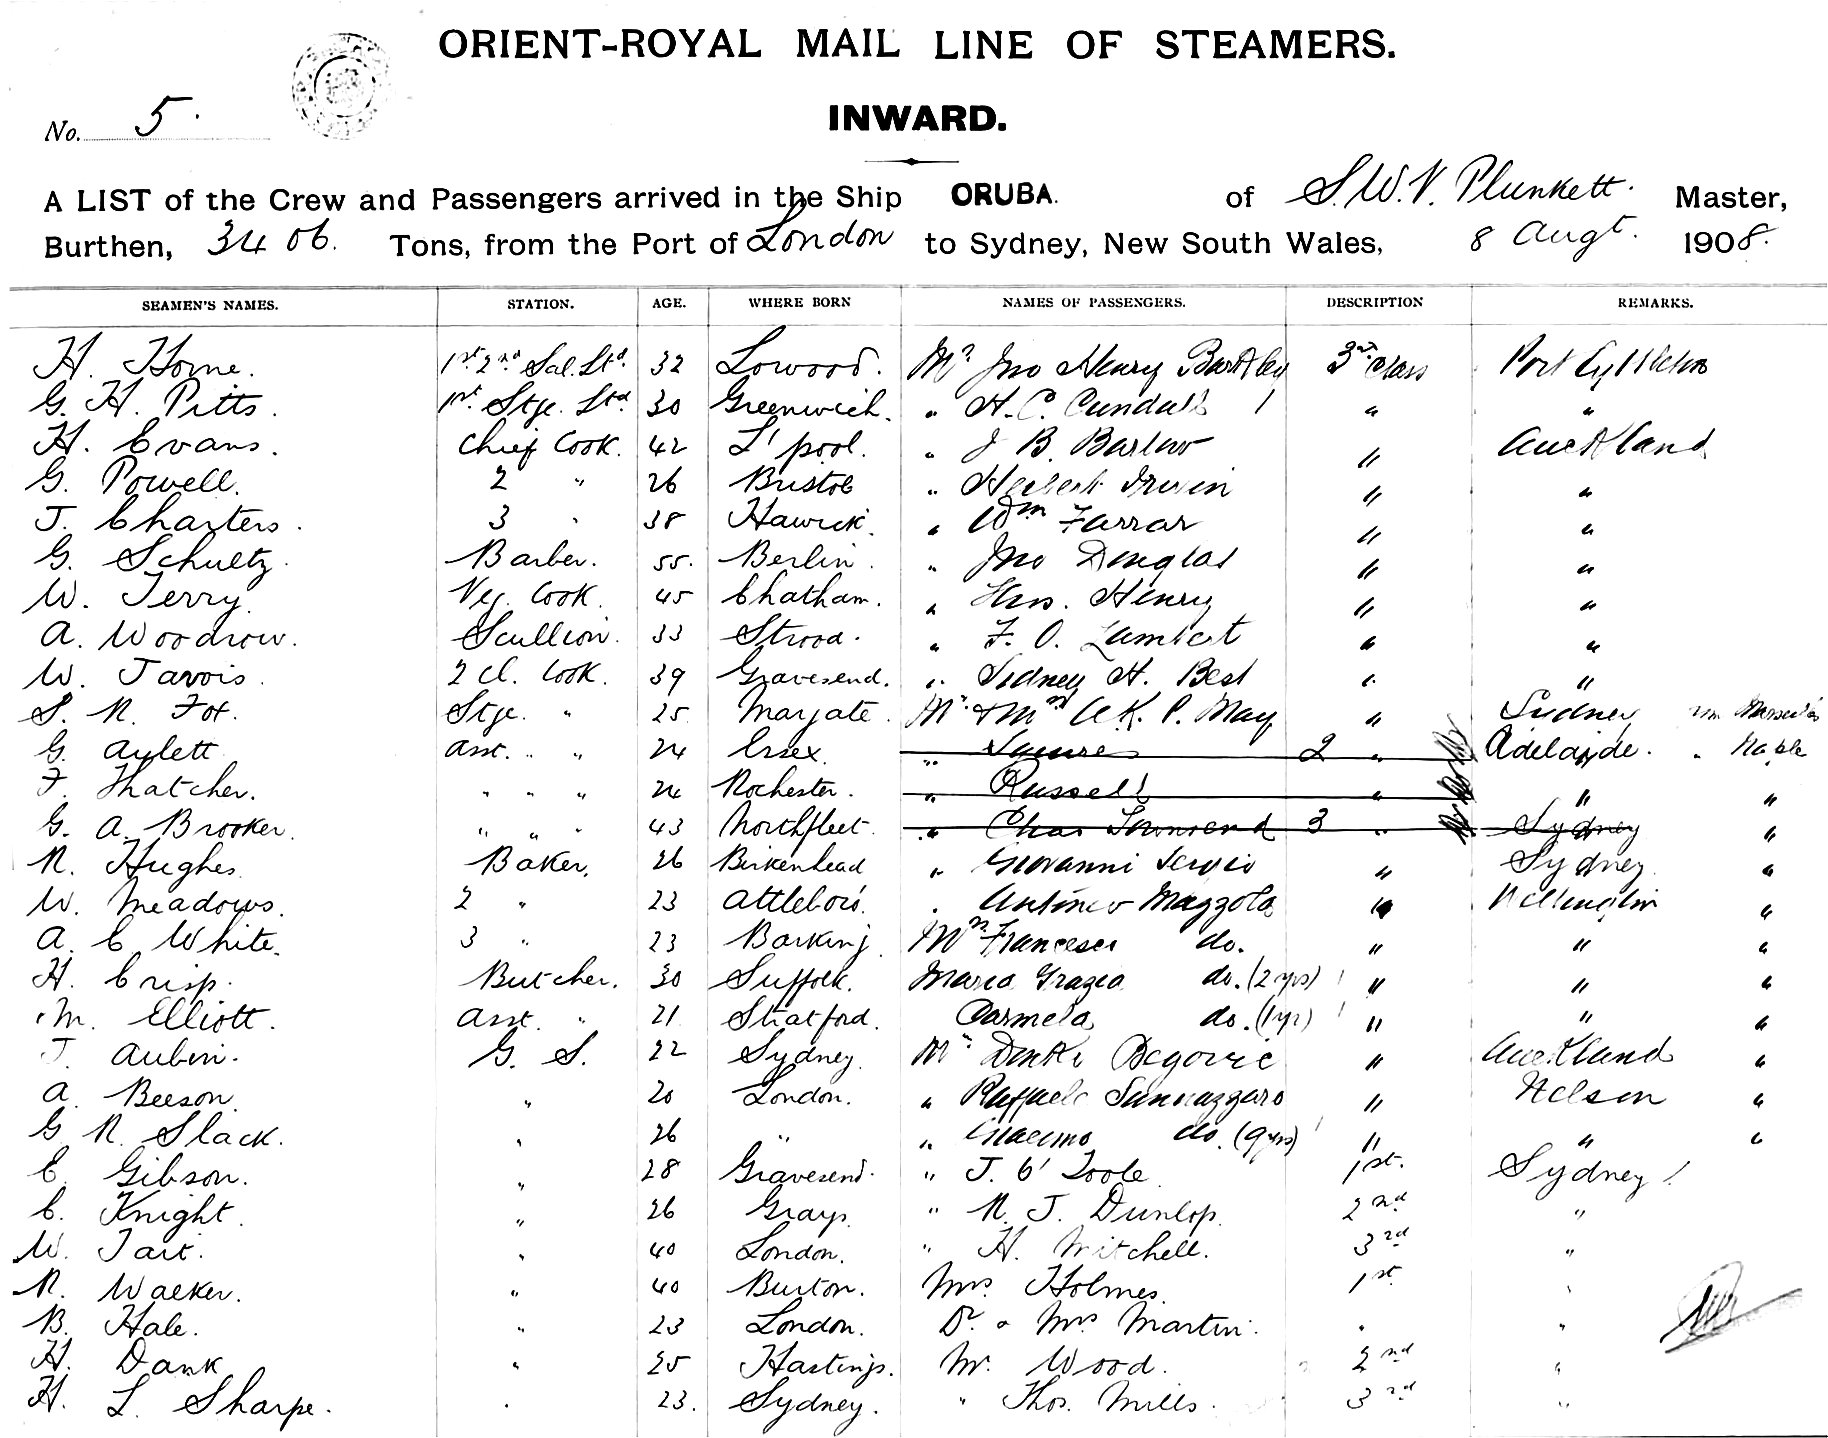 ORIENT-ROYAL MAIL LINE OF STEAMERS.
No. 5.
INWARD.
A LIST of the Crew and Passengers arrived in the Ship ORUBA. of S. W. V. Plunkett. Master,
Burthen, 3406. Tons, from the Port of London to Sydney, New South Wales, 8 Augt. 1908.
SEAMEN'S NAMES. STATION. AGE. WHERE BORN NAMES OF PASSENGERS. DESCRIPTION REMARKS.
H. Horne. 1st 2nd Sal. Std. 32 Lowood. Mr Jno Henry Bartley 3rd Class Port Lyttleton
G. H. Pitts. 1st. Stge. Std. 30 Greenwich. " H. C. Cundall 1 " "
H. Evans. Chief Cook. 42 L'pool. " J B. Barlow " Auckland
G. Powell. 2 " 26 Bristol " Herbert Irwin " "
J. Charters. 3 " 38 Hawick. " Wm Farrar " "
G. Schultz. Barber. 55. Berlin. " Jno Douglas " "
W. Terry. Veg. Cook. 45 Chatham. " Thos. Henry " "
A. Woodrow. Scullion. 33 Strood. " F. O. Lambert " "
W. Jarvis. 2 Cl. Cook. 39 Gravesend. " Sidney H. Best " "
S. R. Fox. Stge. " 25 Margate. Mr & Mrs A. K. P. May " Sydney Marseilles
G. Aylett Asst. " " 24 Essex. " 2 " Adelaide. " Naples
F. Thatcher. " " " 24 Rochester. " Russell " " "
G. A. Brooker. " " " 43 Northfleet. " Chas Townsend 3 " Sydney "
R. Hughes. Baker. 26 Birkenhead " Giovanni " Sydney "
W. Meadows. 2 " 23 Attleboro'. " Antonio Mazzola " Wellington "
A. E White. 3 " 23 Barking Mrs Francesca do. " " "
H. Crisp. Butcher. 30 Suffolk. Maria Grazia do. (2 yrs) 1 " " "
M. Elliott. Asst. " 21 Stratford. Carmela do. (1 yr) 1 " " "
J. Aubin. G. S. 22 Sydney. Mr Begovic " Auckland "
A. Beeson. " 20 London. " Raffaele Sannazzaro " Nelson "
G R. Slack. " 26 " " Giacomo do. (9 yrs) 1 " " "
E. Gibson. " 28 Gravesend. " J. O'Toole 1st. Sydney!
C. Knight. " 26 Grays. " R. J. Dunlop. 2nd "
W. Tait. " 40 London. " H. Mitchell. 3rd "
R. Walker. " 40 Burton. Mrs Holmes. 1st. "
B. Hale. " 23 London. Dr. & Mrs Martin. " "
H. Dank " 25 Hastings. Mr. Wood. 2nd "
H. L. Sharpe. " 23. Sydney. " Thos. Mills. 3rd "